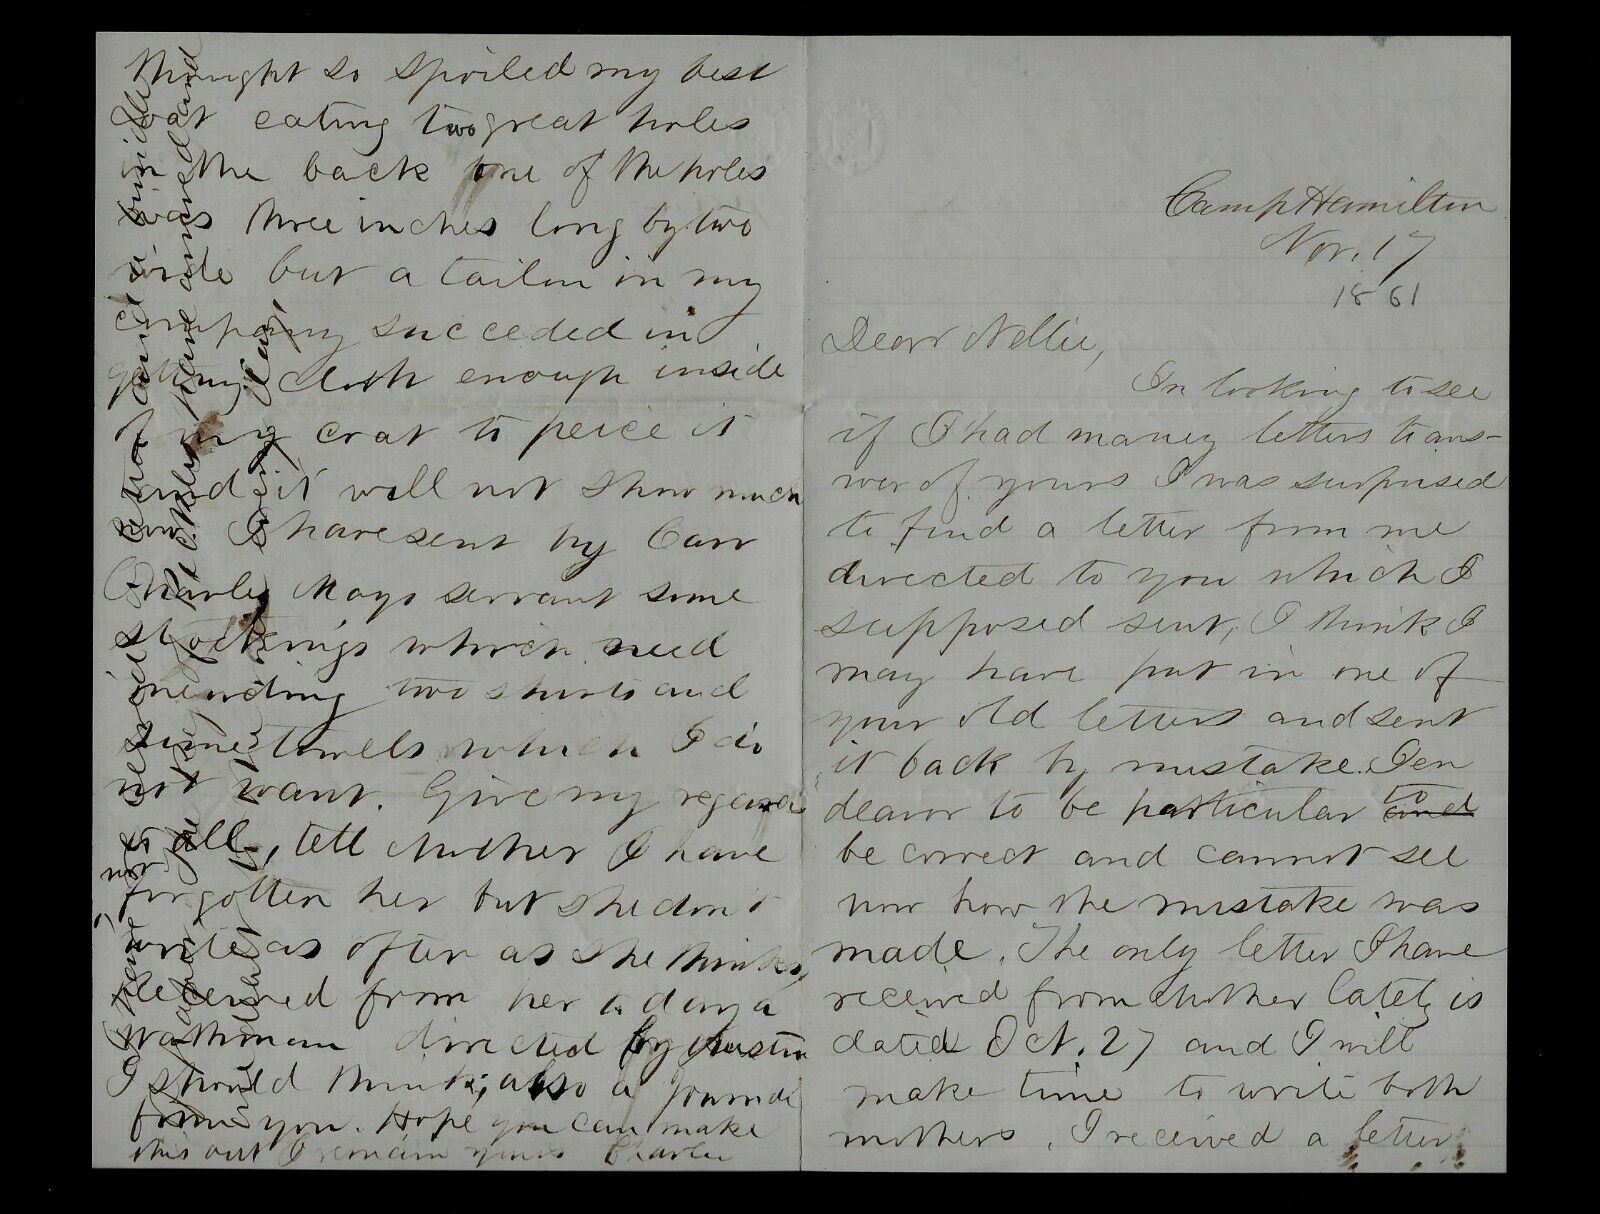 Camp Hamilton
Nov. 17
1861
Dear Nellie,
In looking to see
if I had maney letters trans-
wer of yours I was surprised
to find a letter from me
directed to you which I
supposed sent, I think I
may have put in one of
your old letters and sent
it back by mistake. I en
deavor to be particular and to
be correct and cannot see
now how the mistake was
made. The only letter I have
received from Mother lately is
dated Oct. 27 and I will
make time to write both
mothers. I received a letter
thought so spoiled my best
coat eating two great holes
in the back one of the holes
was three inches long by two
wide but a tailor in my
company succeded in
getting cloth enough inside
of my coat to peice it
and it will not show much
now I have sent by Carr
Charley Mays servant some
stockings which need
mending two shirts and
some towels which I do
not want. Give my regards
to all, tell Mother I have not
forgotten her but she don't
write as often as she thinks,
Received from her to day a
Watchman directed by Austin
I should think; also a Journal
from you. Hope you can make
this out I remain yours Charlie
I have received
and